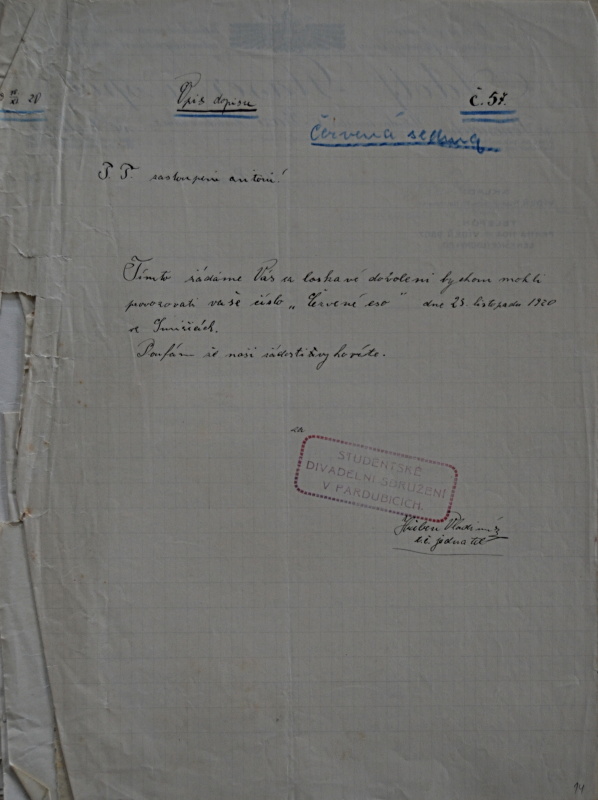 20
Opis dopisu
č. 57.
Červená sedma
T. T. zastoupení autorů!
Tímto žádáme Vás za laskavé dovolení bychom mohli
provozovati vaše číslo „Červené eso" dne 23 listopadu 1920
ve
Doufám že naší žádosti vyhovíte.
za
STUDENTSKÉ
DIVADELNÍ SDRUŽENÍ
V PARDUBICÍCH.
Vladimír
t.č. jednatel
14